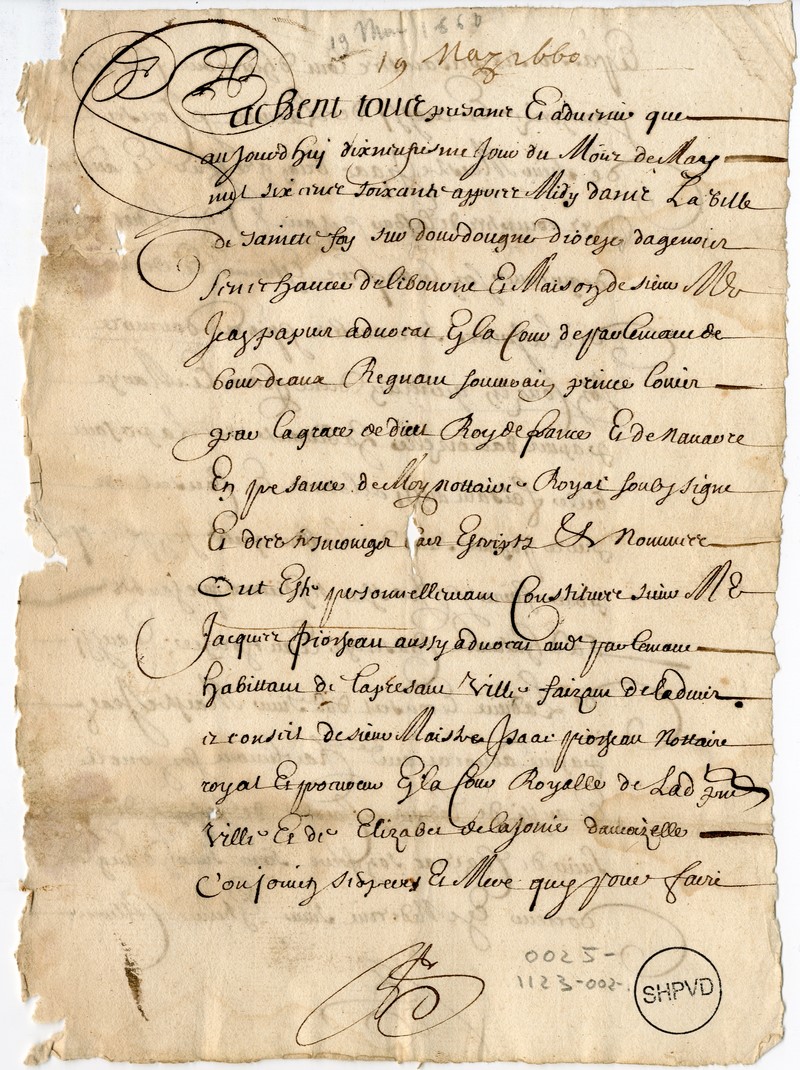 19 May 1660
19 May 1660
Sachent tous presans Et advenir que
aujourdhuy dixneufiesme Jour du Mois de May
mil six cens soixante appres Midy dans La ville
de saincte foy sur dourdougne diocese dagenois
senechaucee de libourne Et Maison de sieur Me
Jean papus advocat En la Cour de parlemant de
bourdeaux Regnant souverain prince Louis
par la grace de dieu Roy de france Et de Navarre
En presance de Moy nottaire Royal soubzsigne
Et des tesmoings bas Escriptz & Nommes
Ont Este personnellemant Constitues sieur Me
Jacques pionseau aussy advocat aud parlemant
habittant de la presant ville faizant de ladvis
et conseil de sieur Maistre Isaac pionseau Nottaire
royal Et procureur En la Cour Royalle de Lad
ville Et de Elizabet de damoizelle
Conjoinctz ses pere Et Mere
 pour faire
SHPVD